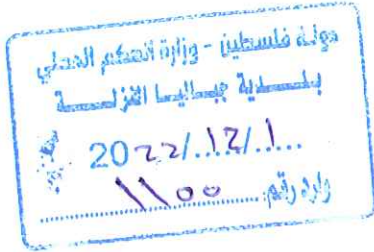 دولة فلسطين - وزارة الحكم المحلي
بلدية جباليا النزلة
2022/12/1
وارد رقم ١١٥٥